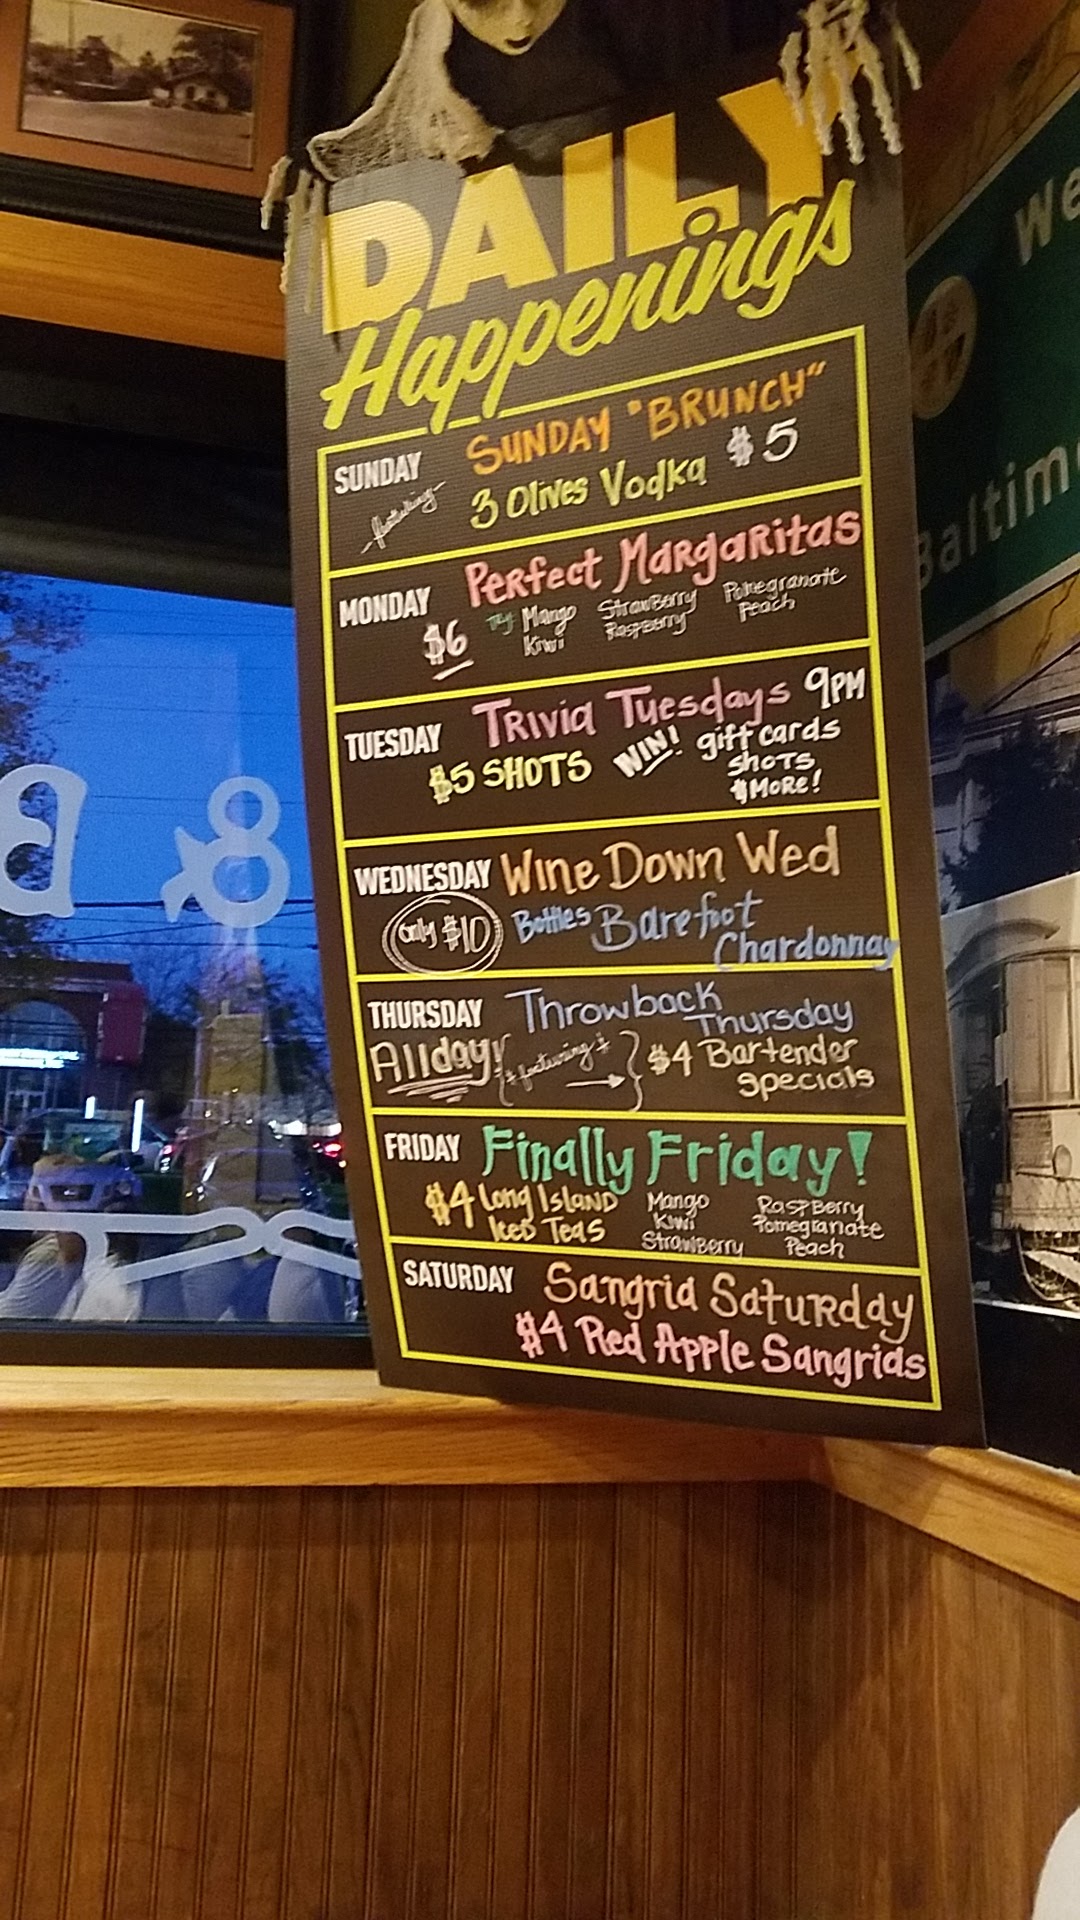 DAILY
Happenings
SUNDAY
SUNDAY "BRUNCH"
featuring
3 Olives Vodka $5
MONDAY
Perfect Margaritas
$6
Try Mango Strawberry Pomegranate
Kiwi Raspberry Peach
TUESDAY
Trivia Tuesdays 9PM
$5 SHOTS
WIN! gift cards
SHOTS
& MORE!
WEDNESDAY
Wine Down Wed
Only $10
Bottles Barefoot
Chardonnay
THURSDAY
Throwback
Thursday
Allday!
featuring
$4 Bartender
specials
FRIDAY
Finally Friday!
$4 Long Island
Iced Teas
Mango Raspberry
Kiwi Pomegranate
Strawberry Peach
SATURDAY
Sangria Saturday
$4 Red Apple Sangrias
We
Baltim
a
&